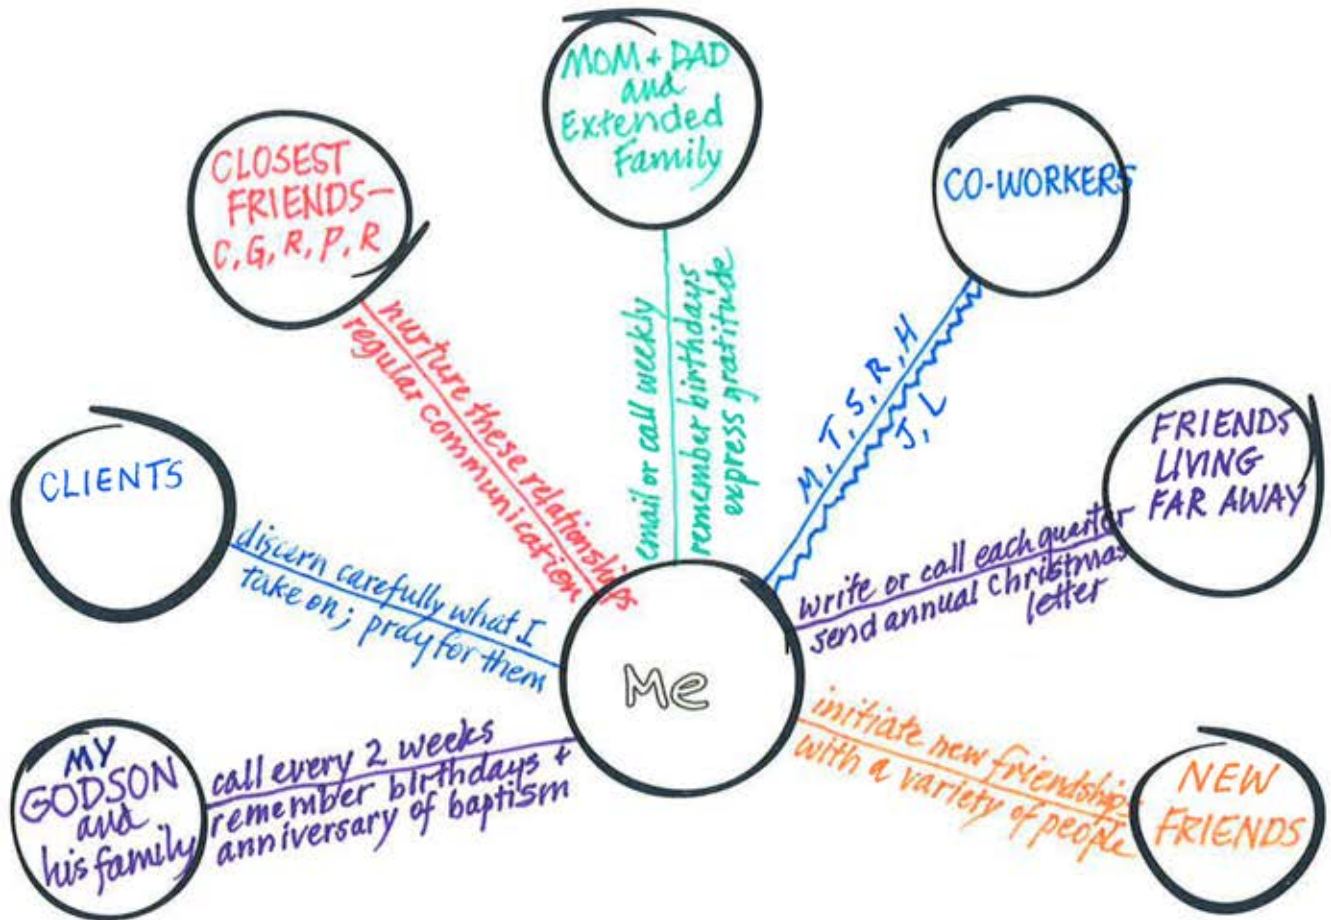 MOM + DAD
and
Extended
Family
CLOSEST
FRIENDS—
C, G, R, P, R
CO-WORKERS
nurture these relationships
regular communication
email or call weekly
remember birthdays
express gratitude
M, T, S, R, H
J, L
FRIENDS
LIVING
FAR AWAY
CLIENTS
discern carefully what I
take on; pray for them
write or call each quarter
send annual Christmas
letter
Me
MY
GODSON
and
his family
call every 2 weeks
remember birthdays +
anniversary of baptism
initiate new friendships
with a variety of people
NEW
FRIENDS